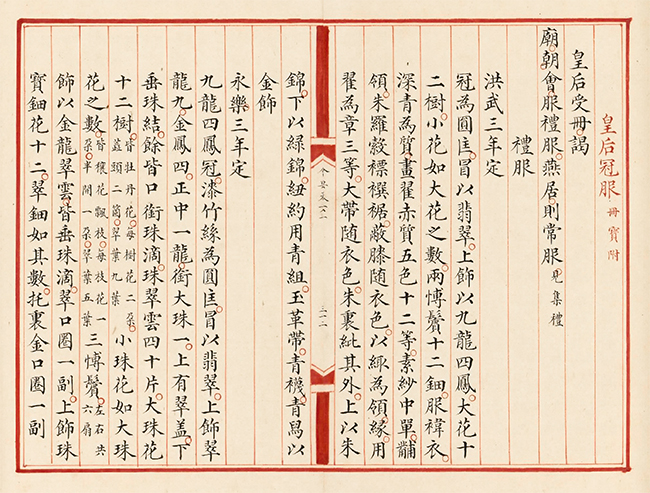 皇后冠服冊寶附
皇后受冊謁
廟朝會服禮服燕居則常服見集禮
禮服
洪武三年定
冠為圓匡冒以翡翠上飾以九龍四鳳大花十
二樹小花如大花之數兩博鬢十二鈿服褘衣
深青為質畫翟赤質五色十二等素紗中單黼
領朱羅縠褾襈裾蔽膝随衣色以緅為領緣用
翟為章三等大帶随衣色朱裏紕其外上以朱
錦下以緑錦紐約用青組玉革帶青襪青舄以
金飾
永樂三年定
九龍四鳳冠漆竹絲為圓匡冒以翡翠上飾翠
龍九金鳳四正中一龍銜大珠一上有翠盖下
垂珠結餘皆口銜珠滴珠翠雲四十片大珠花
十二樹皆牡丹花每樹花二朶蕋頭二箇翠葉九葉小珠花如大珠
花之數皆穰花飄枝每枝花一朶半開一朶翠葉五葉三博鬢左右共六扇
飾以金龍翠雲皆垂珠滴翠口圈一副上飾珠
寶鈿花十二翠鈿如其數托裏金口圈一副